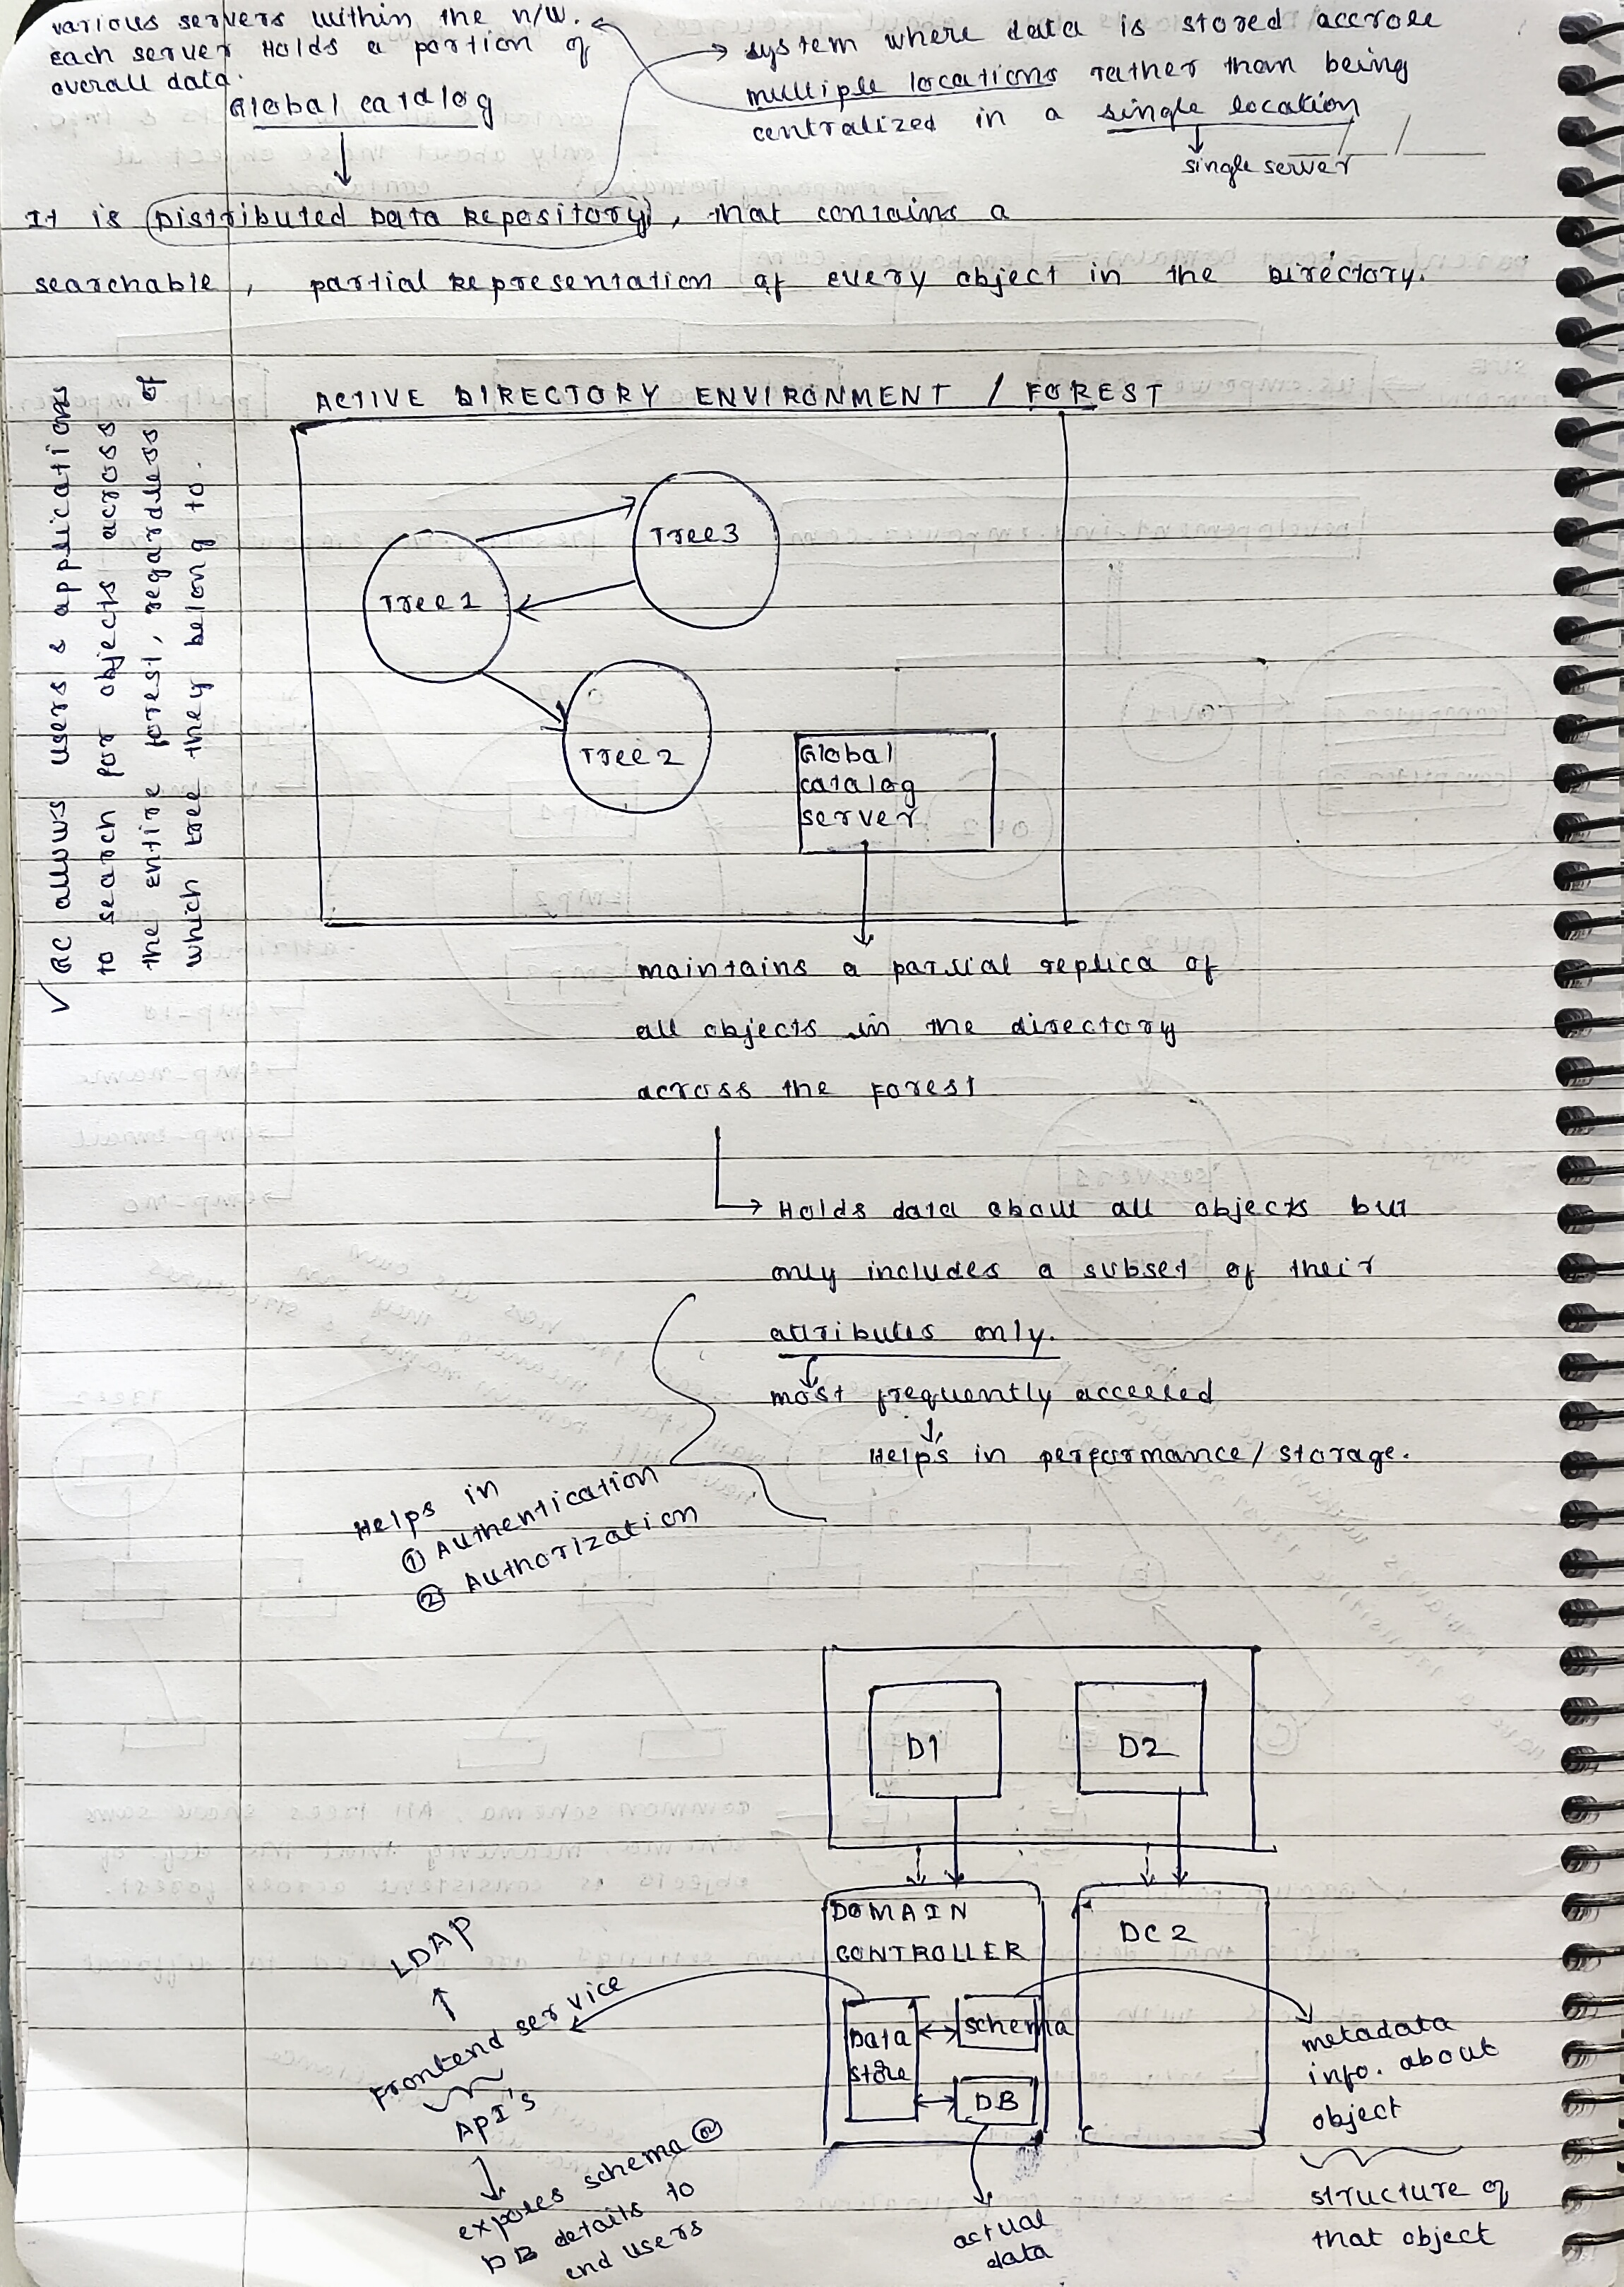 various servers within the n/w.
each server Holds a portion of
overall data.
system where data is stored accross
multiple locations rather than being
centralized in a single location
single server
Global catalog
It is Distributed Data Repository, that contains a
searchable, partial Representation of every object in the Directory.
ACTIVE DIRECTORY ENVIRONMENT / FOREST
GC allows users & applications
to search for objects across
the entire forest, regardless of
which tree they belong to.
Tree 3
Tree 1
Tree 2
Global
catalog
server
maintains a partial replica of
all objects in the directory
across the forest
Holds data about all objects but
only includes a subset of their
attributes only.
most frequently accessed
Helps in performance/storage.
Helps in
① Authentication
② Authorization
D1
D2
DOMAIN
CONTROLLER
DC 2
Data
store
schema
DB
LDAP
Frontend service
API's
exposes schema @
DB details to
end users
actual
data
metadata
info. about
object
structure of
that object